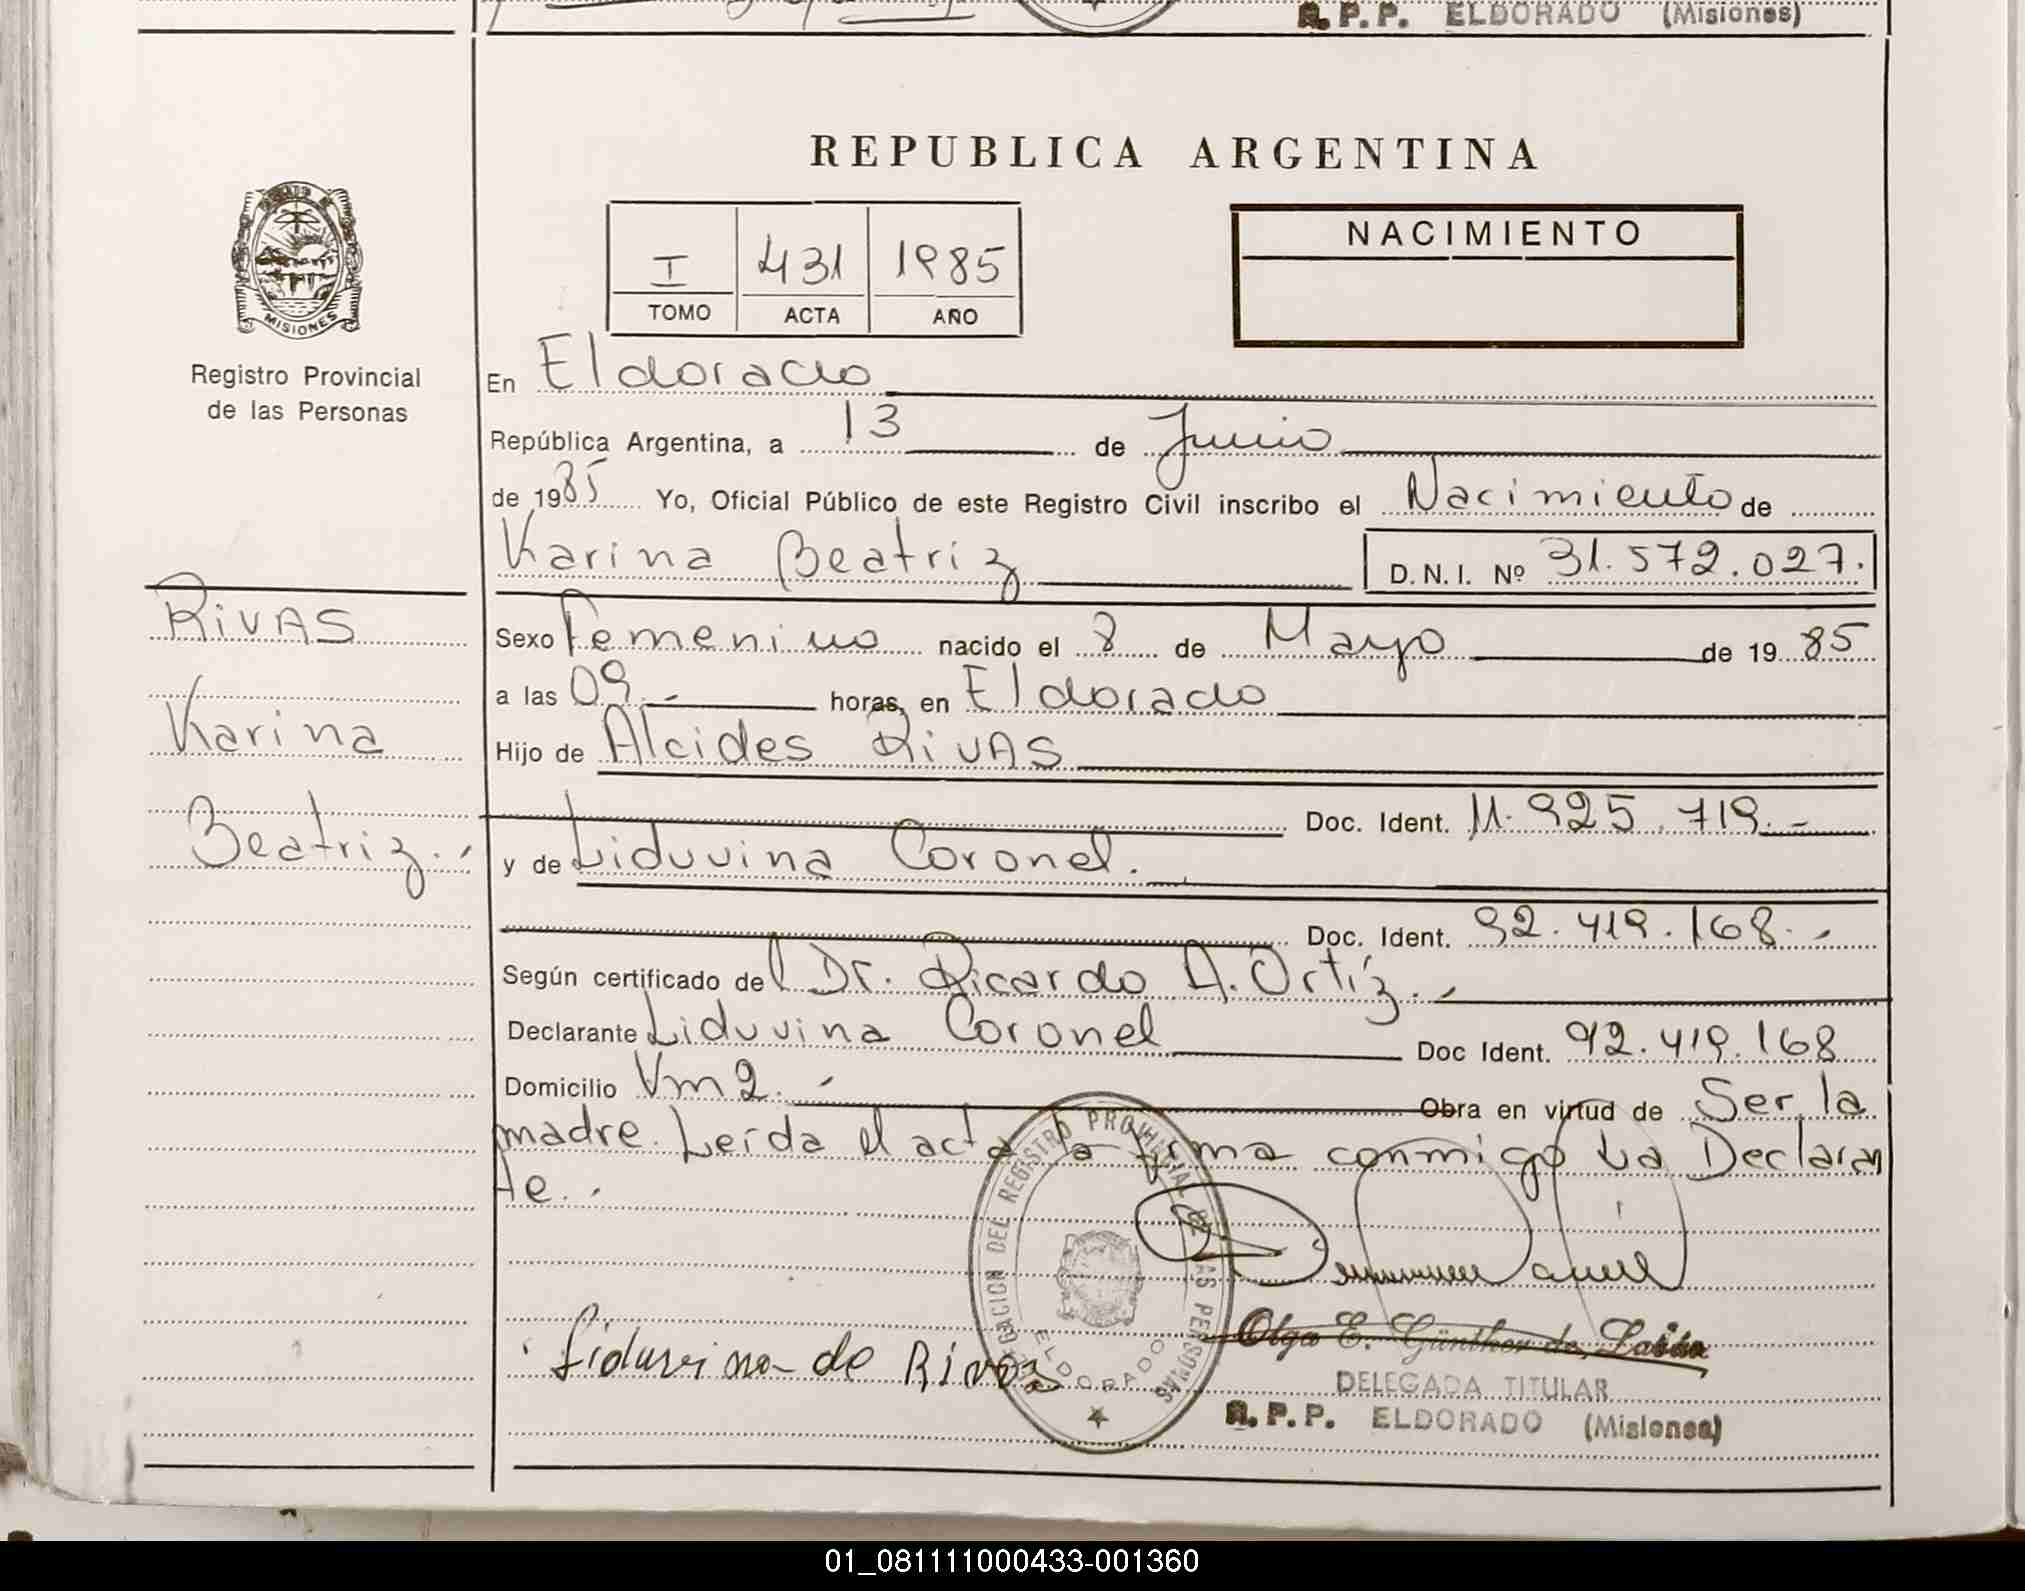 R. P. P. ELDORADO (Misiones)
REPUBLICA ARGENTINA
MISIONES
Registro Provincial
de las Personas
I 431 1985
TOMO ACTA AÑO
NACIMIENTO
En Eldorado
República Argentina, a 13 de Junio
de 1985 Yo, Oficial Público de este Registro Civil inscribo el Nacimiento de
Karina Beatriz D.N.I. Nº 31.572.027.
RIVAS
Karina
Beatriz.-
Sexo Femenino nacido el 8 de Mayo de 1985
a las 09.- horas, en Eldorado
Hijo de Alcides RIVAS
Doc. Ident. M. 925.719.-
y de Liduvina Coronel.
Doc. Ident. 92.419.168.-
Según certificado del Dr. Ricardo A. Ortíz.-
Declarante Liduvina Coronel Doc Ident. 92.419.168
Domicilio Km 2.- Obra en virtud de Ser la
madre. Leída el acta la firma conmigo La Declaran
te.-
DELEGACION DEL REGISTRO PROVINCIAL DE LAS PERSONAS
ELDORADO
Liduvina de Rivas
Olga E. Günther de
DELEGADA TITULAR
R. P. P. ELDORADO (Misiones)
01_081111000433-001360